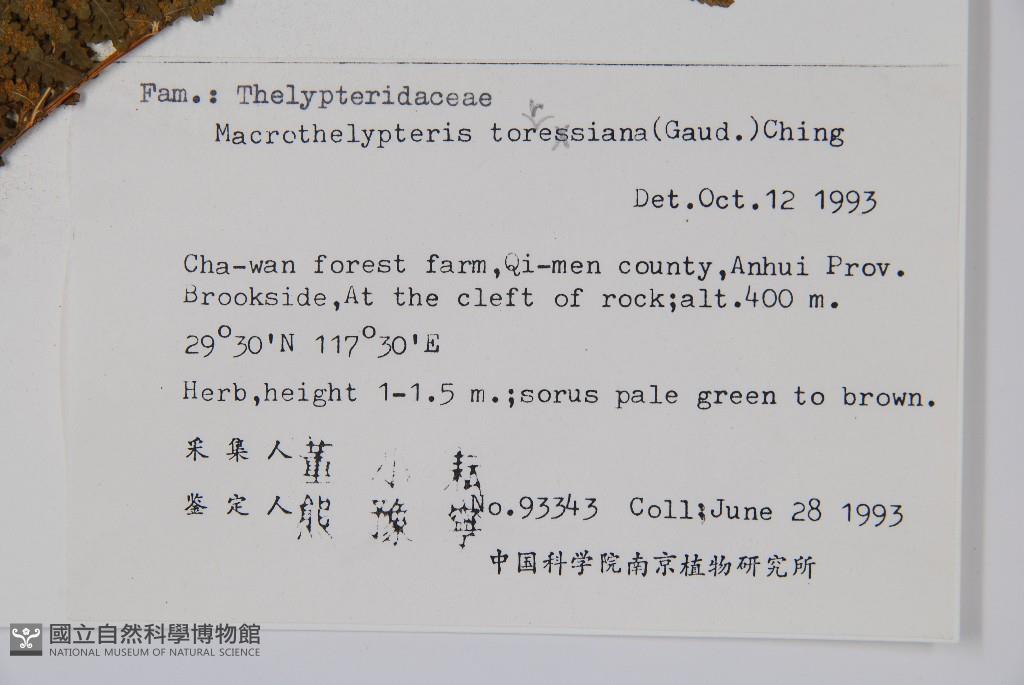 Fam.: Thelypteridaceae
r
Macrothelypteris toressiana(Gaud.)Ching
Det.Oct.12 1993
Cha-wan forest farm,Qi-men county,Anhui Prov.
Brookside,At the cleft of rock;alt.400 m.
29°30'N 117°30'E
Herb,height 1-1.5 m.;sorus pale green to brown.
采集人 董 小 耘
鉴定人 熊 豫 宁 No.93343 Coll;June 28 1993
中国科学院南京植物研究所
國立自然科學博物館
NATIONAL MUSEUM OF NATURAL SCIENCE